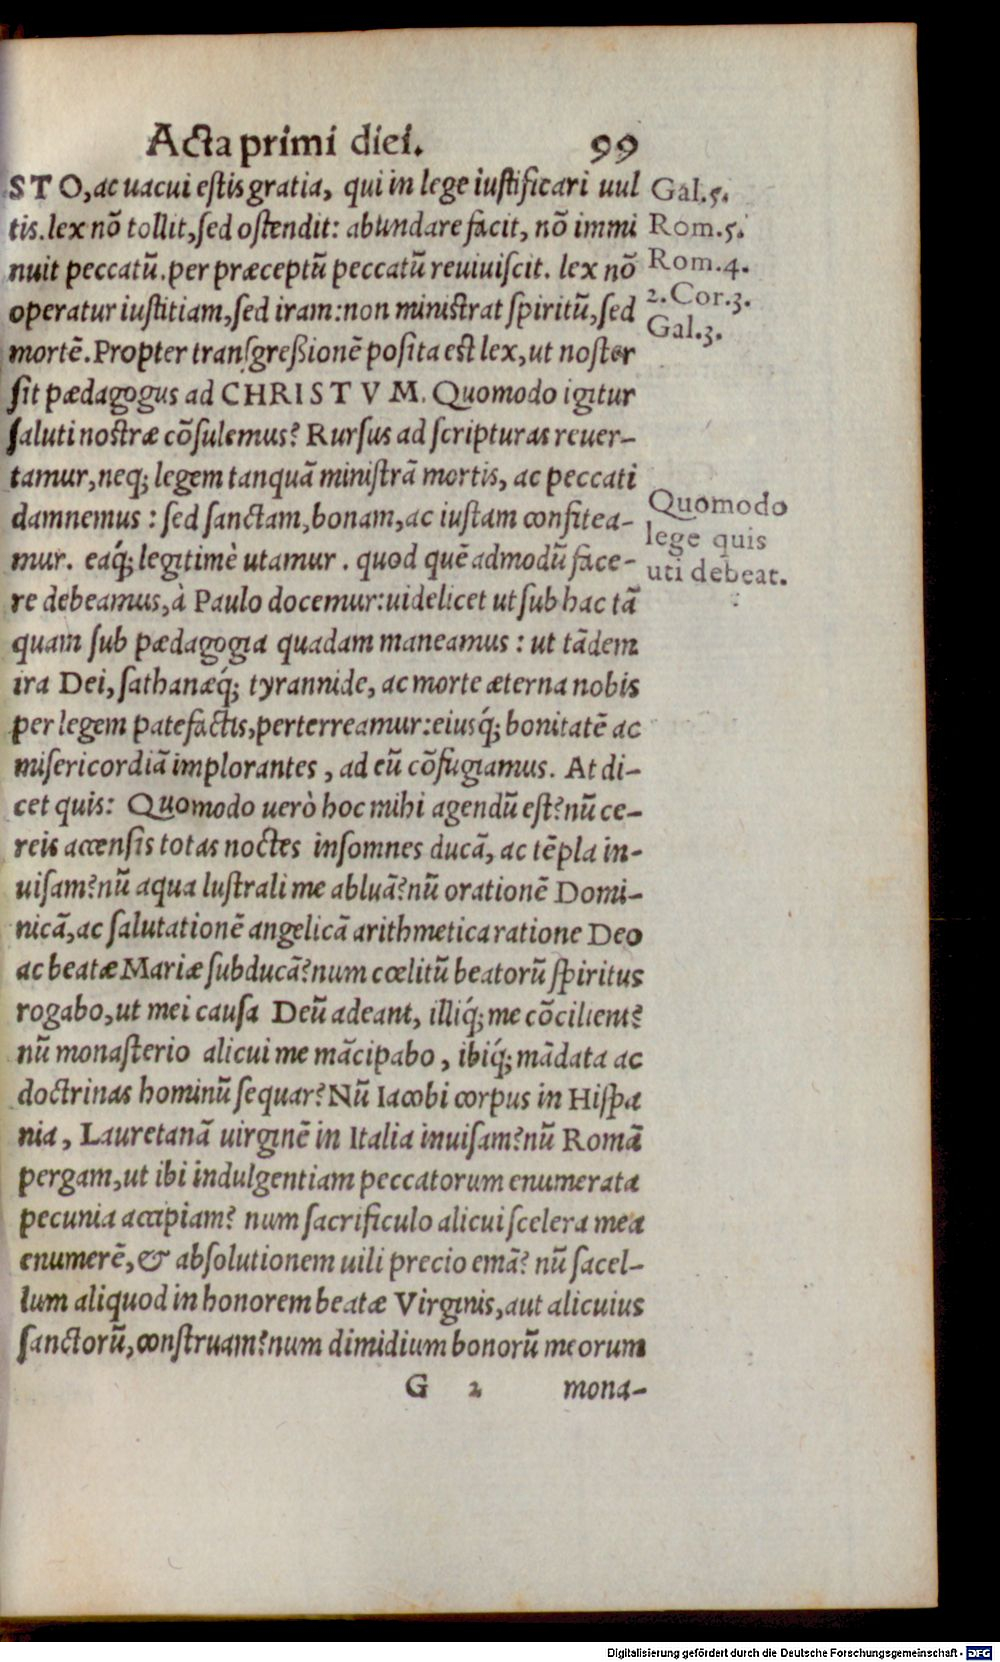 Acta primi diei. 99
STO, ac uacui estis gratia, qui in lege iustificari uul
tis. lex nõ tollit, sed ostendit: abundare facit, nõ immi
nuit peccatũ. per præceptũ peccatũ reuiuiscit. lex nõ
operatur iustitiam, sed iram: non ministrat spiritũ, sed
mortẽ. Propter transgreßionẽ posita est lex, ut noster
sit pædagogus ad CHRISTVM. Quomodo igitur
saluti nostræ cõsulemus? Rursus ad scripturas reuer-
tamur, neq; legem tanquã ministrã mortis, ac peccati
damnemus: sed sanctam, bonam, ac iustam confitea-
mur. eaq́; legitimè utamur. quod quẽadmodũ face-
re debeamus, à Paulo docemur: uidelicet ut sub hac tã
quam sub pædagogia quadam maneamus: ut tãdem
ira Dei, sathanæq́; tyrannide, ac morte æterna nobis
per legem patefactis, perterreamur: eiusq́; bonitatẽ ac
misericordiã implorantes, ad eũ cõfugiamus. At di-
cet quis: Quomodo uerò hoc mihi agendũ est? nũ ce-
reis accensis totas noctes insomnes ducã, ac tẽpla in-
uisam? nũ aqua lustrali me abluã? nũ orationẽ Domi-
nicã, ac salutationẽ angelicã arithmetica ratione Deo
ac beatæ Mariæ subducã? num cœlitũ beatorũ spiritus
rogabo, ut mei causa Deũ adeant, illiq́; me cõcilient?
nũ monasterio alicui me mãcipabo, ibiq́; mãdata ac
doctrinas hominũ sequar? Nũ Iacobi corpus in Hispa
nia, Lauretanã uirginẽ in Italia inuisam? nũ Romã
pergam, ut ibi indulgentiam peccatorum enumerata
pecunia accipiam? num sacrificulo alicui scelera mea
enumerẽ, & absolutionem uili precio emã? nũ sacel-
lum aliquod in honorem beatæ Virginis, aut alicuius
sanctorũ, construam? num dimidium bonorũ meorum
G 2 mona-
Gal.5.
Rom.5.
Rom.4.
2.Cor.3.
Gal.3.
Quomodo
lege quis
uti debeat.
Digitalisierung gefördert durch die Deutsche Forschungsgemeinschaft - DFG